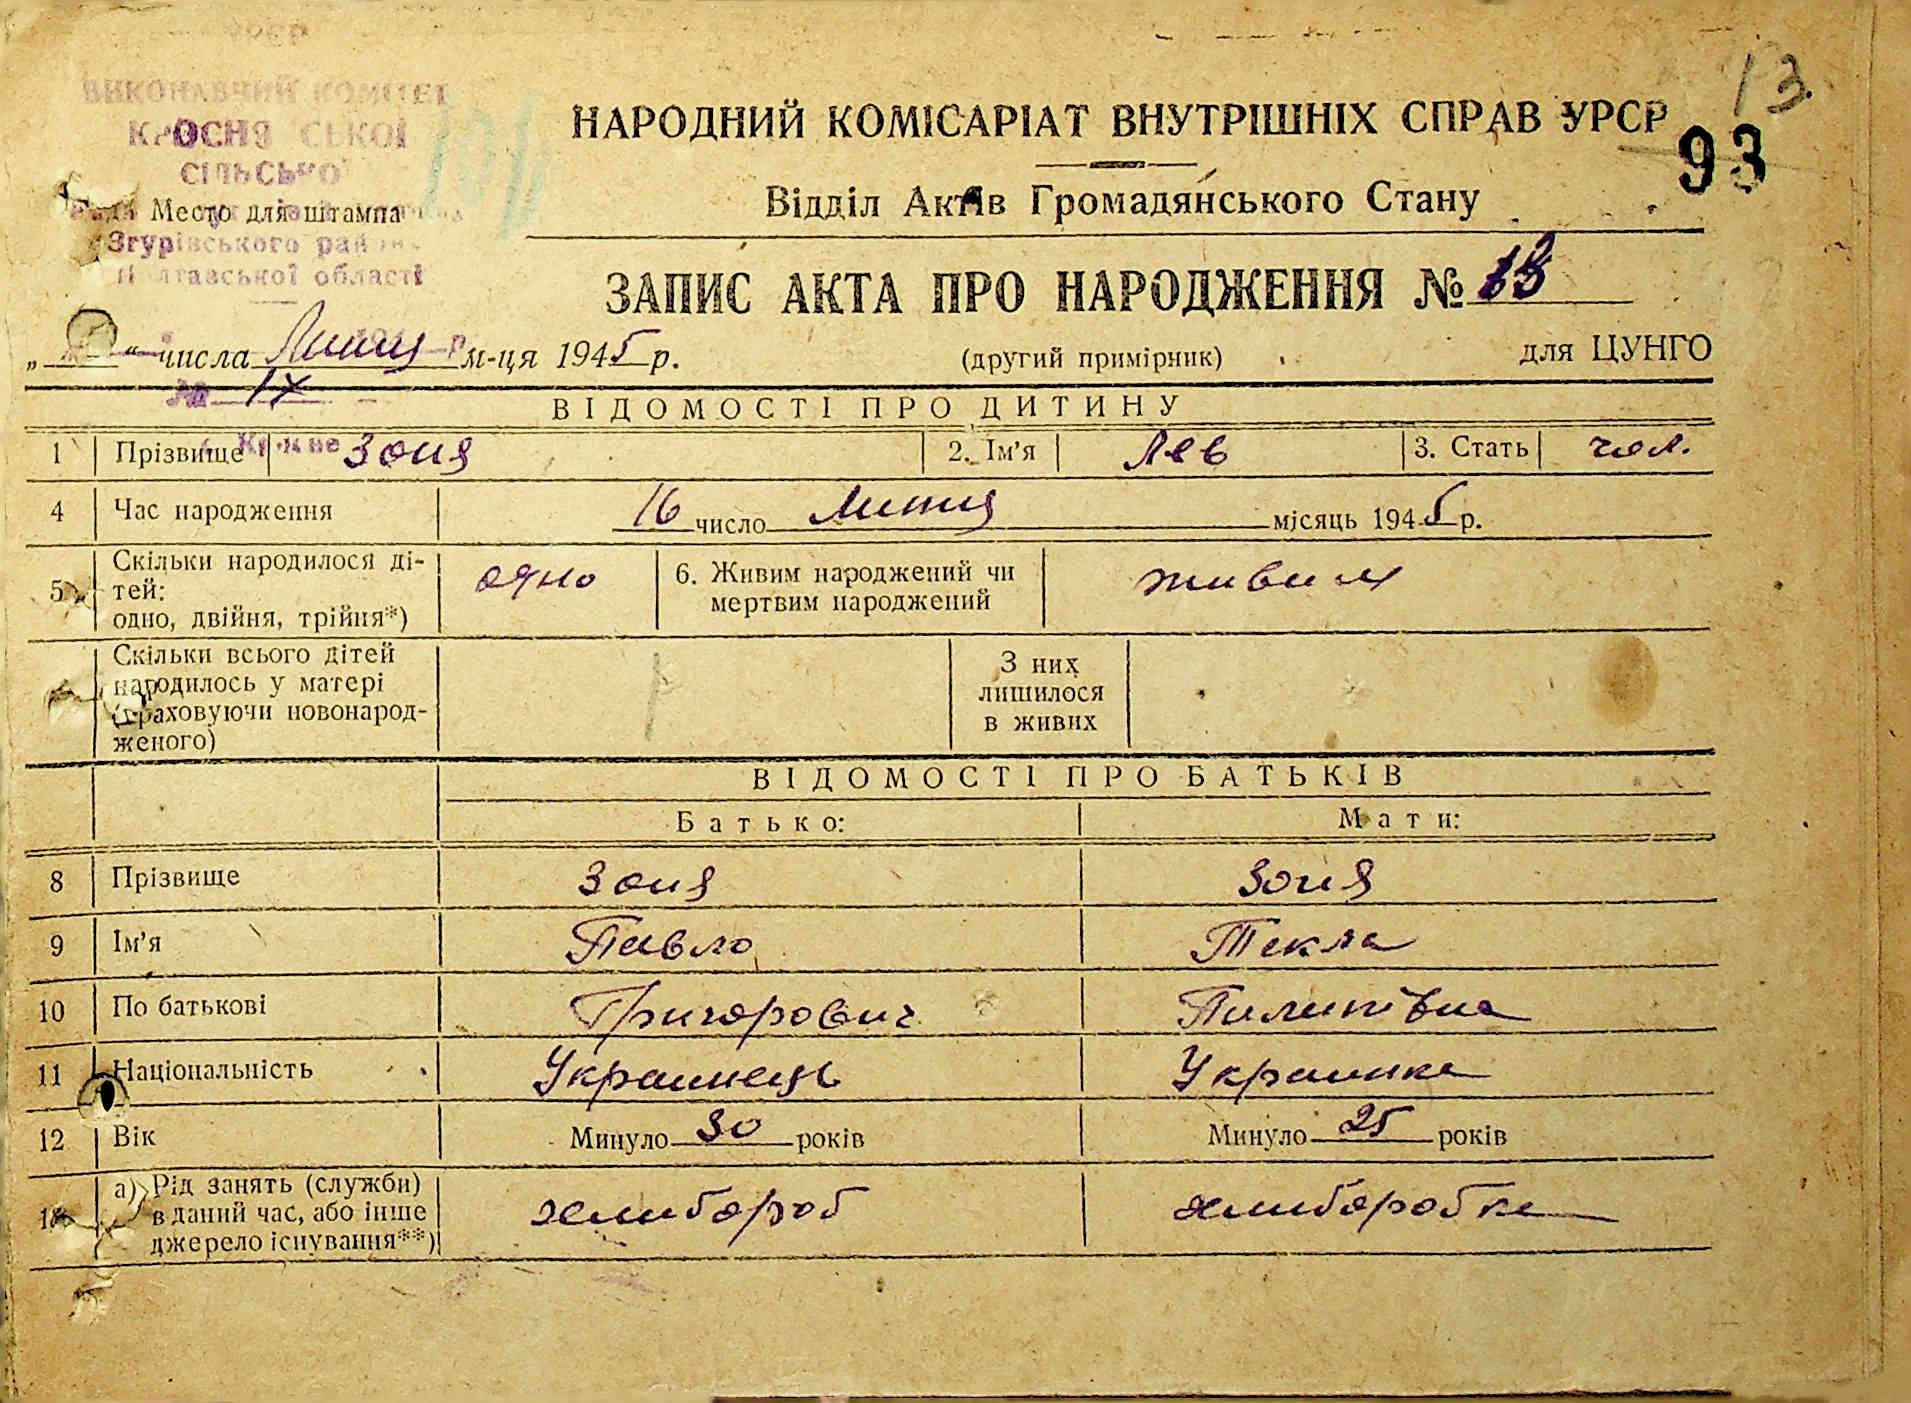 13.
ВИКОНАВЧИЙ КОМІТЕТ
КРОСНЯ СЬКОЇ
СІЛЬСЬКО
Ради
Згурівського рай
Полтавської області
Место для штампа
НАРОДНИЙ КОМІСАРІАТ ВНУТРІШНІХ СПРАВ УРСР
93
Відділ Актів Громадянського Стану
ЗАПИС АКТА ПРО НАРОДЖЕННЯ № 13
„ “ числа Липня м-ця 1945 р.
(другий примірник)
для ЦУНГО
№ 17
ВІДОМОСТІ ПРО ДИТИНУ
1 Прізвище Зоця 2. Ім’я Лев 3. Стать чол.
4 Час народження 16 число Липня місяць 1945 р.
5 Скільки народилося ді-
тей:
одно, двійня, трійня*) одно 6. Живим народжений чи
мертвим народжений живим
Скільки всього дітей
народилось у матері
(враховуючи новонарод-
женого)
З них
лишилося
в живих
ВІДОМОСТІ ПРО БАТЬКІВ
Батько: Мати:
8 Прізвище Зоця Зоця
9 Ім’я Павло Текла
10 По батькові Григорович Пилипівна
11 Національність Украинець Украинка
12 Вік Минуло 30 років Минуло 25 років
13 а) Рід занять (служби)
в даний час, або інше
джерело існування**) хлибороб хлиборобка